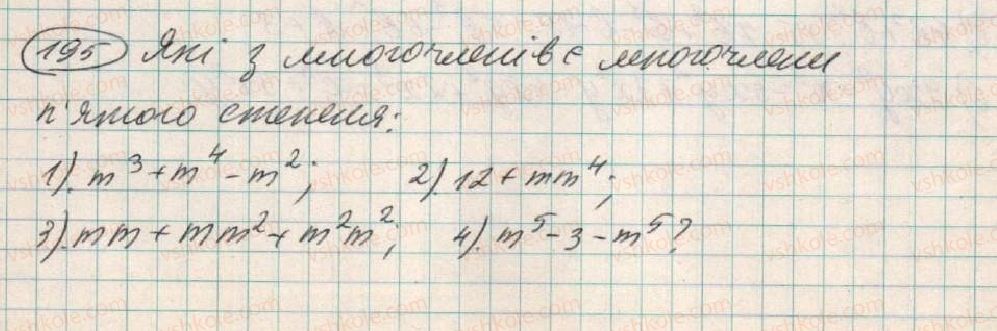 195 Які з многочленів є многочлени
п'ятого степеня:
1). m³ + m⁴ - m²; 2). 12 + mm⁴;
3). mm + mm² + m²m²; 4). m⁵ - 3 - m⁵?